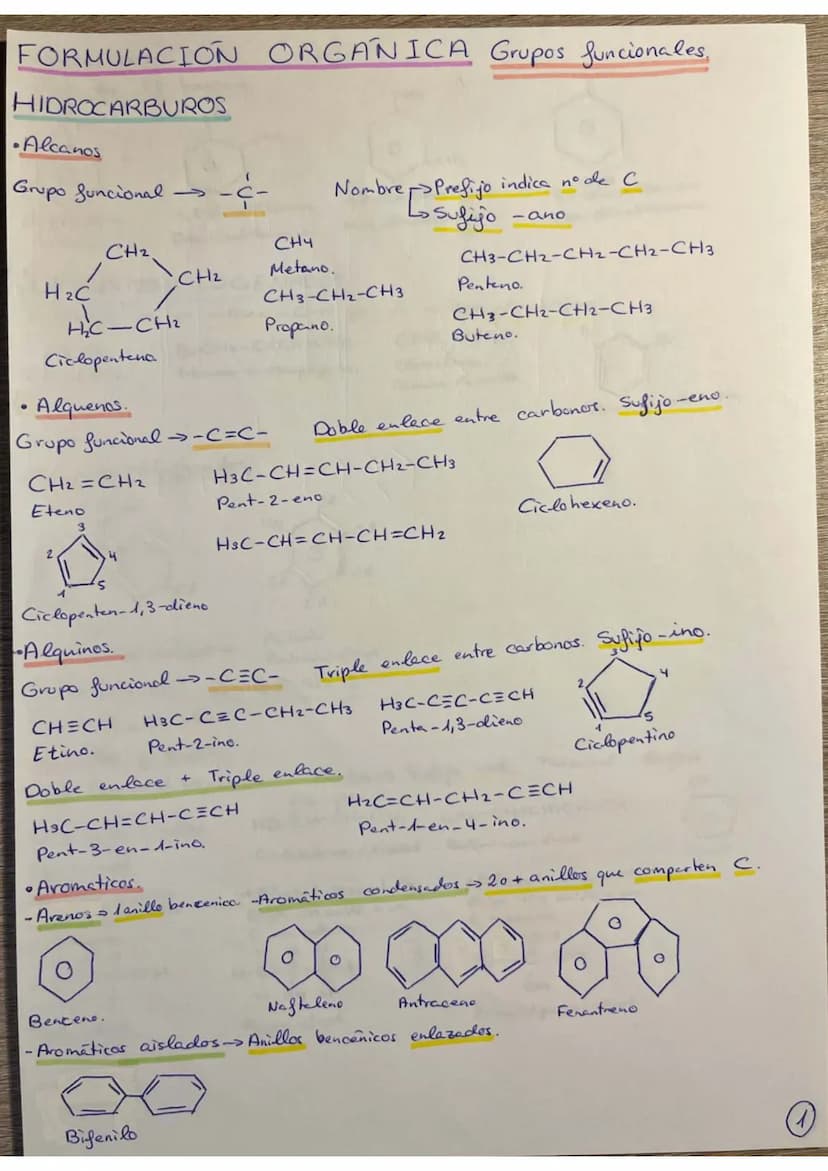 FORMULACIÓN ORGÁNICA Grupos funcionales.
HIDROCARBUROS
• Alcanos
Grupo funcional → -C- Nombre → Prefijo indica nº de C
↳ Sufijo -ano
CH2
CH2
H2C
H2C — CH2
Ciclopentano
CH4
Metano.
CH3-CH2-CH3
Propano.
CH3-CH2-CH2-CH2-CH3
Pentano.
CH3-CH2-CH2-CH3
Butano.
• Alquenos.
Grupo funcional → -C=C- Doble enlace entre carbonos. Sufijo -eno.
CH2=CH2
Eteno
H3C-CH=CH-CH2-CH3
Pent-2-eno
Ciclohexeno.
3
2 4
1 5
Ciclopenten-1,3-dieno
H3C-CH=CH-CH=CH2
• Alquinos.
Grupo funcional → -C≡C- Triple enlace entre carbonos. Sufijo -ino.
CH≡CH
Etino.
H3C-C≡C-CH2-CH3
Pent-2-ino.
H3C-C≡C-C≡CH
Penta-1,3-dieno
3
2 4
1 5
Ciclopentino
Doble enlace + Triple enlace.
H3C-CH=CH-C≡CH
Pent-3-en-1-ino.
H2C=CH-CH2-C≡CH
Pent-1-en-4-ino.
• Aromaticos.
- Arenos → 1 anillo bencenico - Aromáticos condensados → 2 o + anillos que comparten C.
Benceno.
Naftaleno
Antraceno
Fenantreno
- Aromáticos aislados → Anillos bencénicos enlazados.
Bifenilo
1